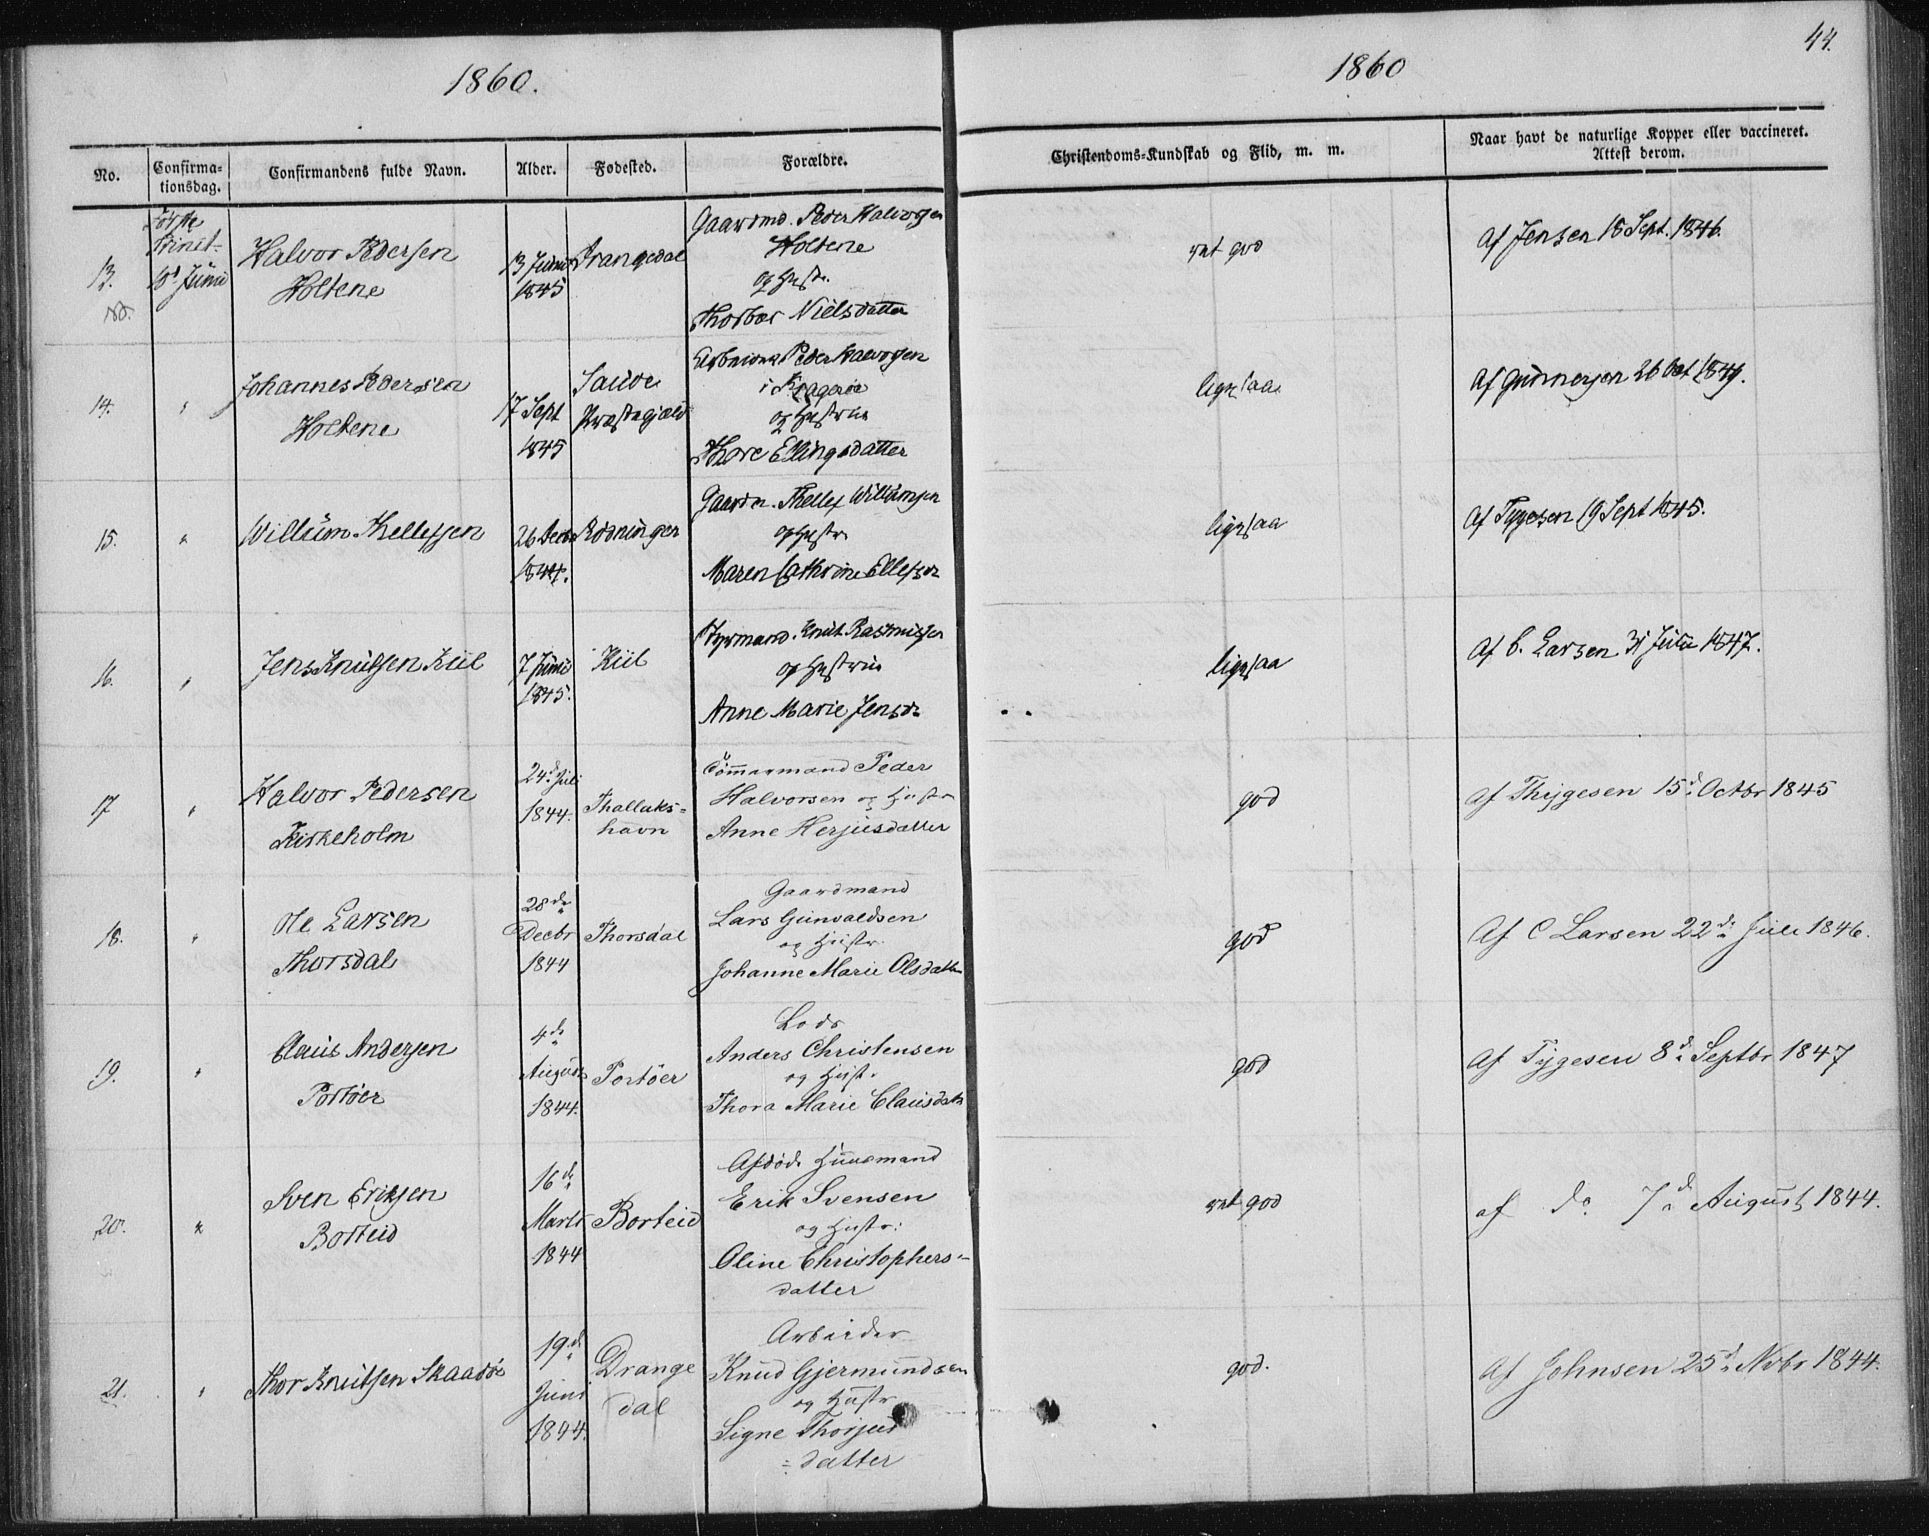 44.
1860.
1860
No.
Confirma-
tionsdag.
Confirmandens fulde Navn.
Alder.
Fødested.
Forældre.
Christendoms-Kundskab og Flid, m. m.
Naar havt de naturlige Kopper eller vaccineret.
Attest derom.
13.
Første
Trinit-
Juni
Halvor Pedersen
Holtene
13 Juni
1845
Drangedal
Gaardmd. Peder Halvorsen
Holtene
og Hustr.
Thorbor Nielsdatter
god
Af Jensen 18 Sept. 1846.
14.
"
Johannes Pedersen
Holtene
17 Sept
1845
Saude
Præstegjæld
Peder Halvorsen
i Kragerøe
og Hustrue
Thore Ellingsdatter
ligesaa
Af Gunnersen 26 Oct 1849.
15.
"
Willum Thellefsen
26 Decbr
1844.
Rødningen
Gaardm. Thellef Willumsen
og Hustr.
Maren Cathrine Ellefsdr
ligesaa
Af Tygesen 19 Sept 1845.
16.
"
Jens Knutsen Kiil
7 Juni
1845.
Kiil
Styrmand. Knut Rasmussen
og Hustrue
Anne Marie Jensdr
ligesaa
Af C. Larsen 31 Juli 1847.
17
"
Halvor Pedersen
Kirkeholm
24d. Juli
1844.
Thallaks-
havn
Tømmermand Peder
Halvorsen og Hustr
Anne Herjusdatter
god
Af Thygesen 15d. Octbr 1845
18.
"
Ole Larsen
Thorsdal
28de
Decbr
1844
Thorsdal
Gaardmand
Lars Gunvaldsen
og Hustr.
Johanne Marie Olsdatter
god
Af C Larsen 22d. Juli 1846.
19.
"
Claus Andersen
Portøer
4de
August
1844.
Portøer
Lods
Anders Christensen
og Hust.
Thora Marie Clausdatr
god
Af Tygesen 8d. Septbr 1847
20.
"
Sven Eriksen
Borteid
16de
Marts
1844
Borteid
Afdøde Huusmand
Erik Svensen
og Hustr:
Oline Christophers-
datter
god
af do 7d. August 1844.
21.
"
Thor Knutsen Skaadøe
19d.
Juni
1844.
Drange
dal
Arbeider
Knud Gjermundsen
og Hustr
Signe Thorjus
=datter
god.
Af Johnsen 25d. Novbr 1844.